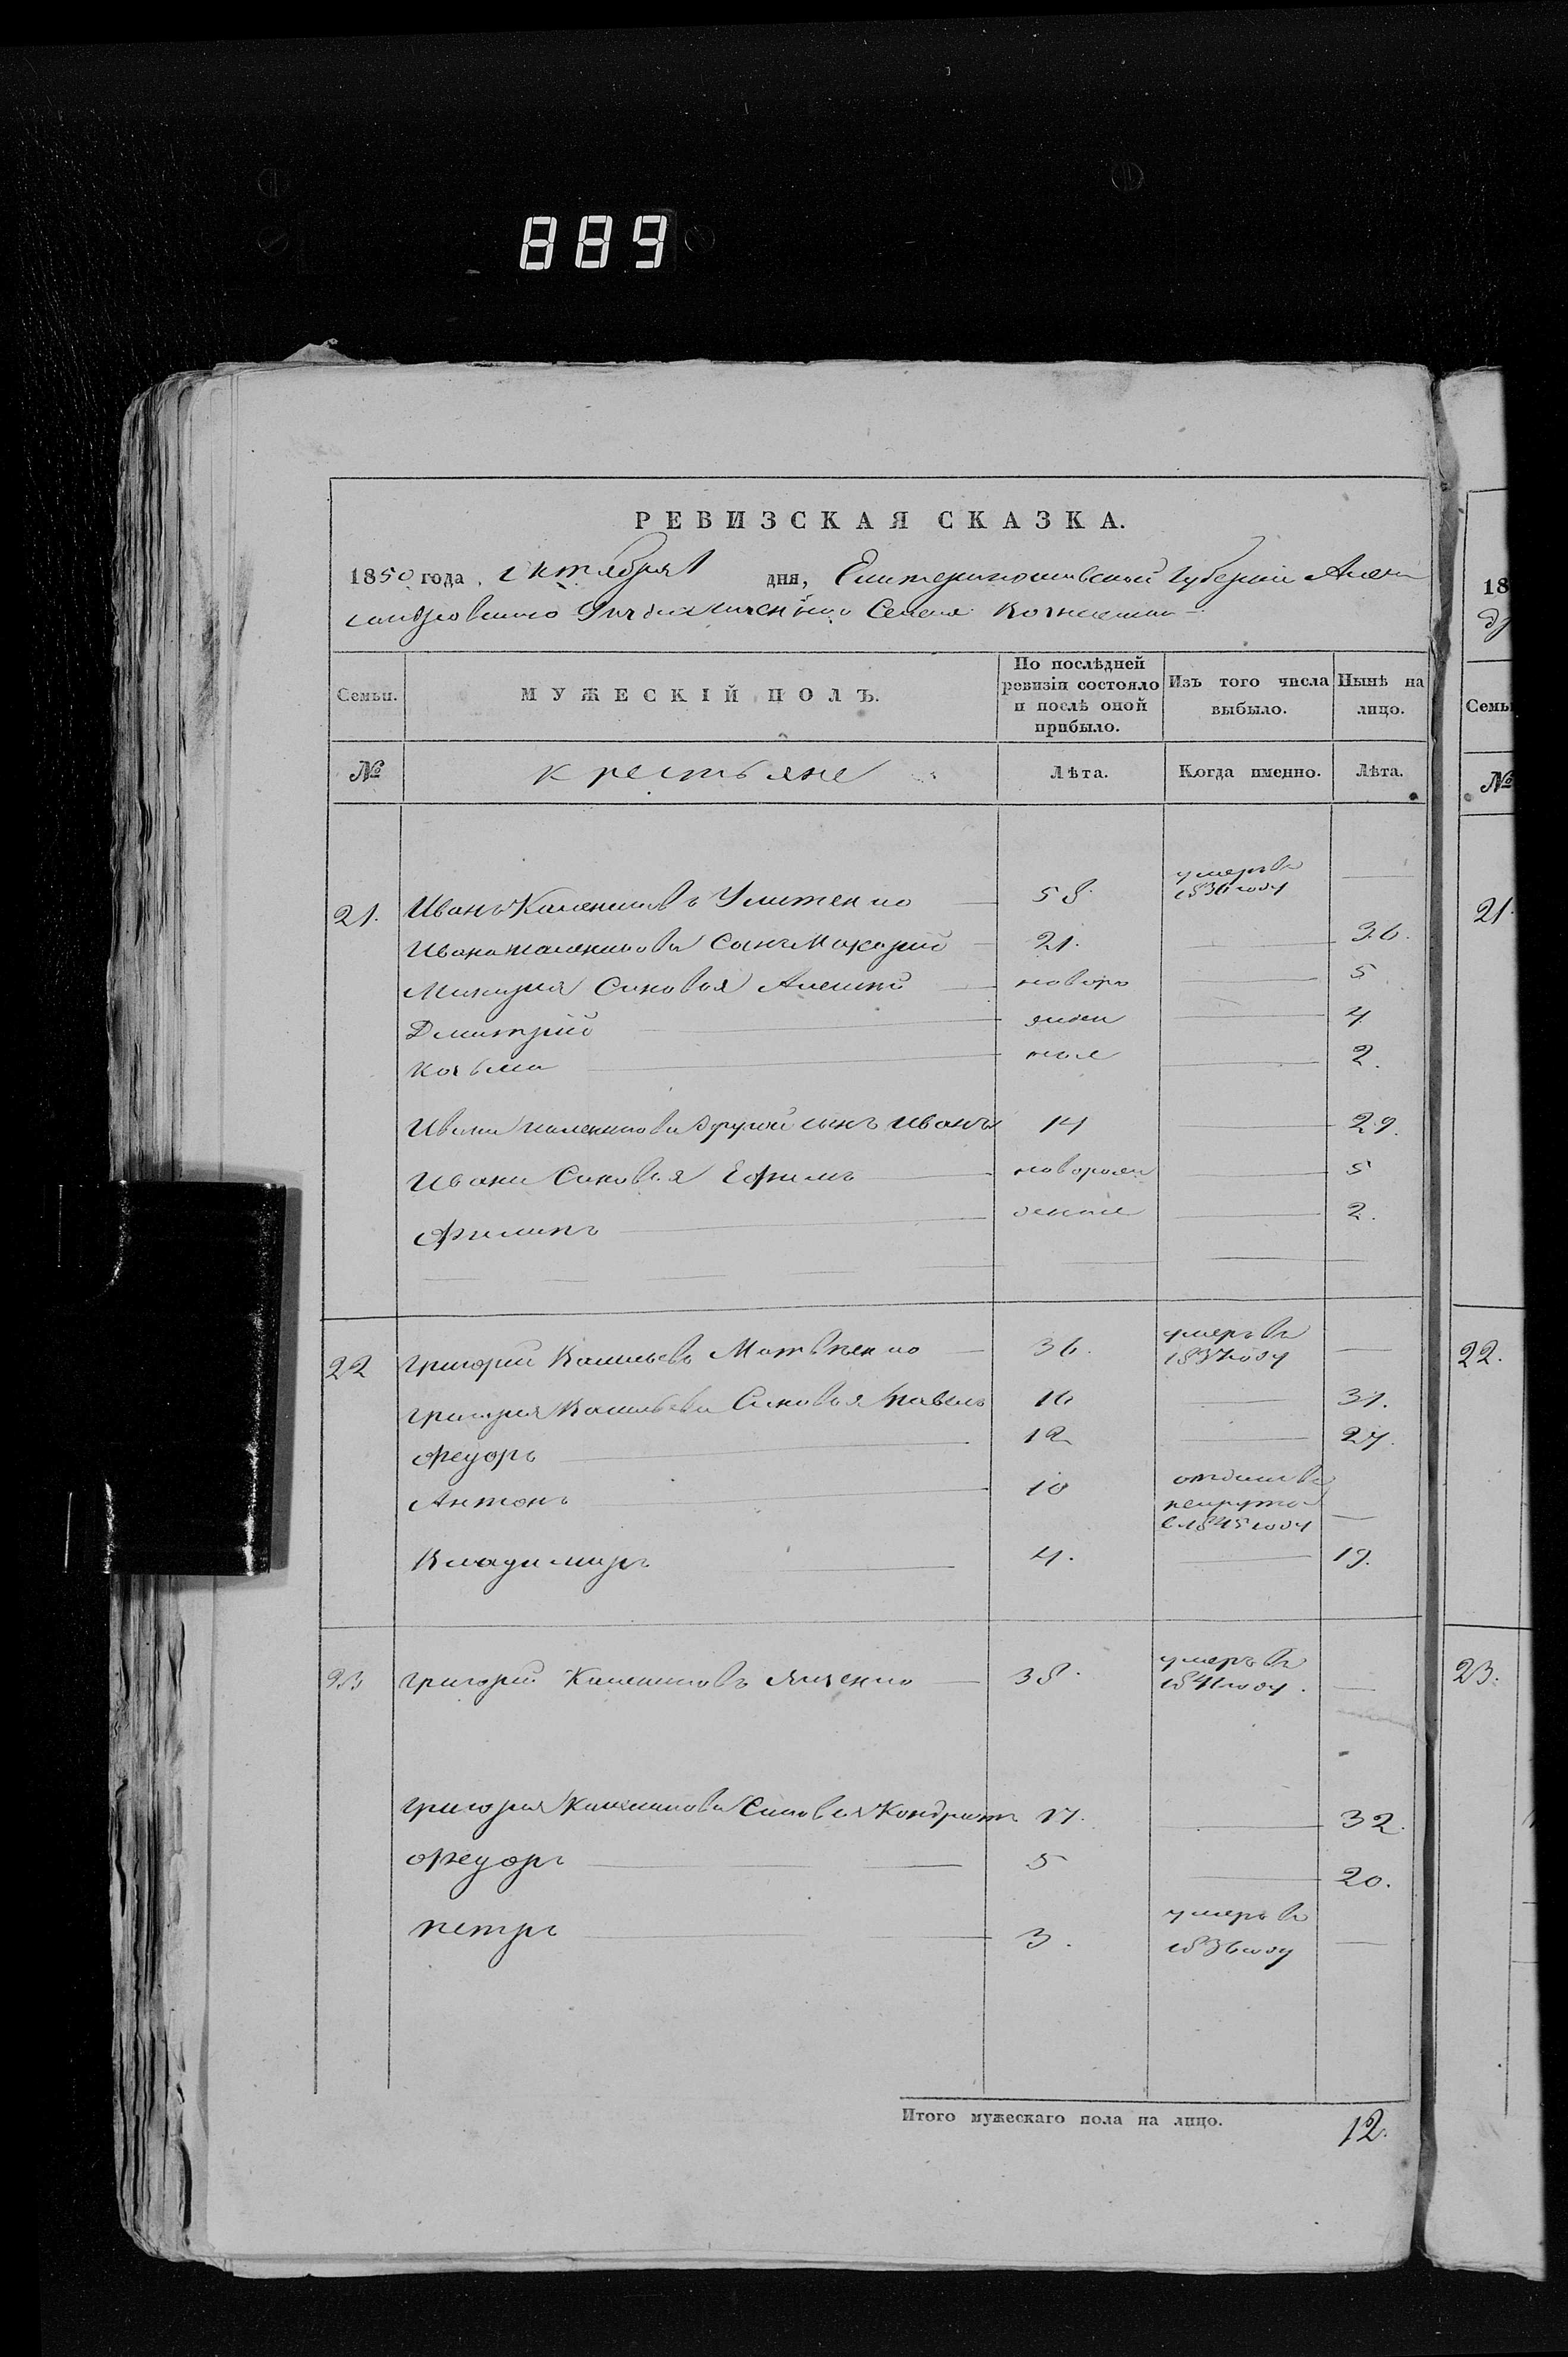 889
РЕВИЗСКАЯ СКАЗКА.
1850 года, октября 1 дня, Екатеринославской губернии Алек
сандровского Села
Семьи. МУЖЕСКІЙ ПОЛЪ. По послѣдней ревизіи состояло и послѣ оной прибыло. Изъ того числа выбыло. Нынѣ на лицо.
№ крестьяне Лѣта. Когда именно. Лѣта.
21. Иванъ 58 умеръ въ 1836 году —
Ивана Сынъ Макарий 21. — 36.
Макария Сыновья Алексей новоро — 5
Дмитрий жден — 4
Козьма ные — 2.
Ивана другой сынъ Иванъ 14 — 29.
Ивана Сыновья Ефимъ новорож — 5
Филипъ денные — 2.
22 Григорий Васильевъ Матвиенко 36. умеръ въ 1837 году —
Григория Васильева Сыновья Павелъ 16 — 31.
Федоръ 12 — 27.
Антонъ 10 отдан въ рекруты в 1845 году —
Владимиръ 4. — 19.
23 Григорий 38. умеръ въ 1841 году. —
Григория Сыновья Кондратъ 17. — 32.
Федоръ 5 — 20.
петръ 3. умеръ въ 1836 году —
Итого мужескаго пола на лицо. 12.
18
Семь
№
21.
22.
23.